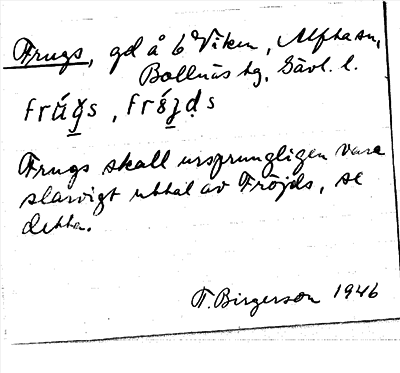 Frugs, gd å 6 Viken, Alfta sn,
Bollnäs tg, Gävl. l.
Frugs skall ursprungligen vara
slarvigt uttal av Fröjds, se
detta.
T. Birgerson 1946